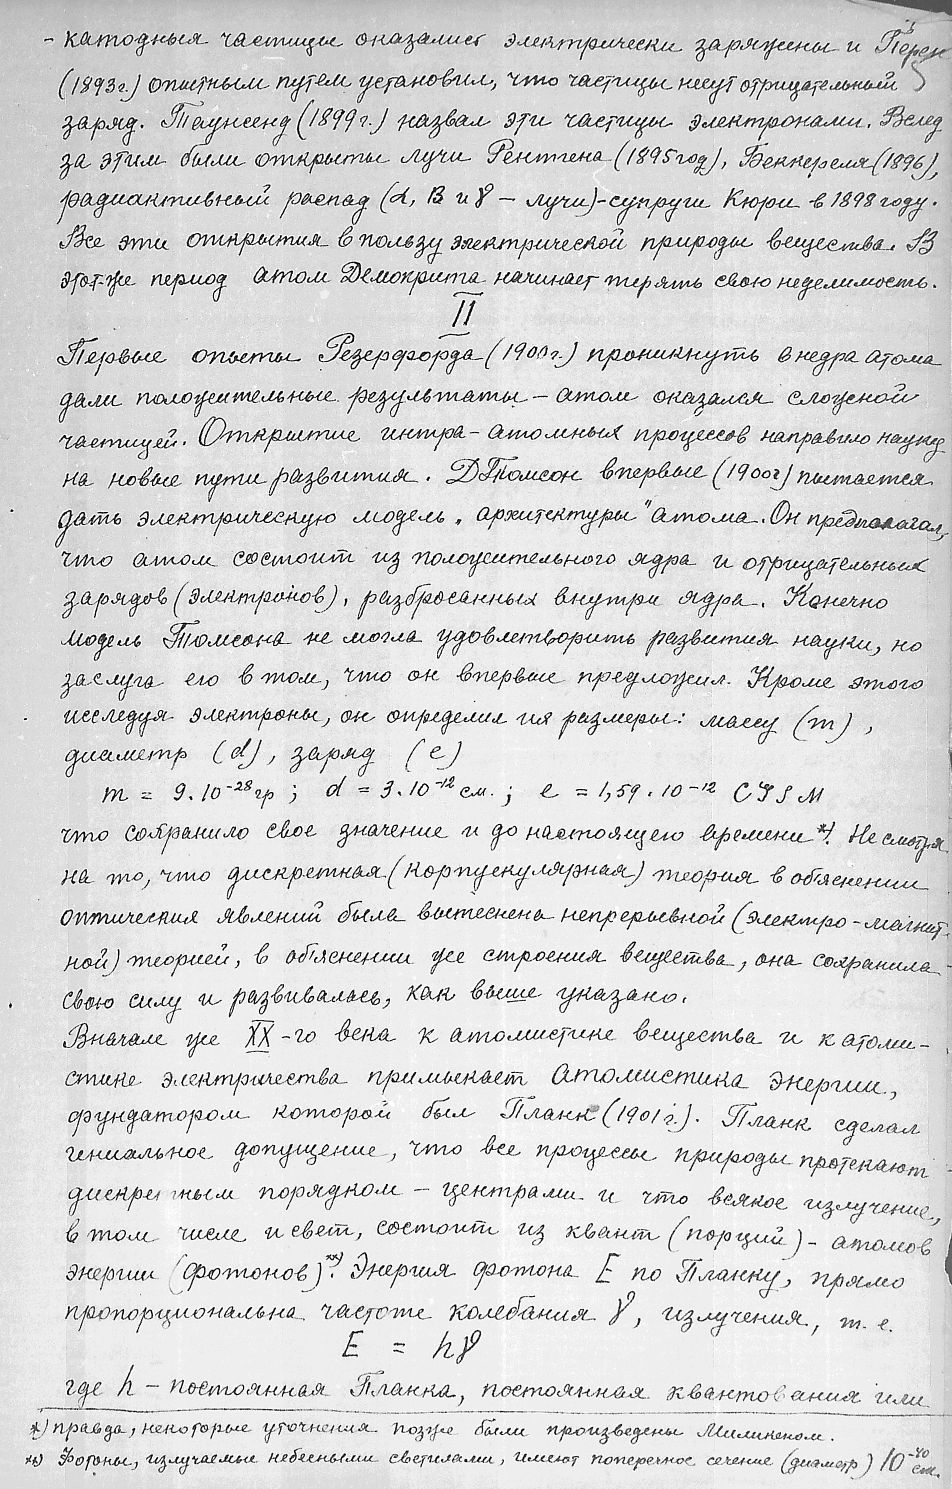 - катодныя частицы оказались электрически заряжены и Перен
(1893г.) опытным путем установил, что частицы несут отрицательный
заряд. Таунсенд (1899г.) назвал эти частицы электронами. Вслед
за этим были открыты лучи Рентгена (1895год), Беккереля (1896),
радиактивный распад (α, β и γ – лучи)-супруги Кюри в 1898 году.
Все эти открытия в пользу электрической природы вещества. В
этот-же период атом Демокрита начинает терять свою неделимость.
II
Первые опыты Резерфорда (1900г.) проникнуть в недра атома
дали положительные результаты – атом оказался сложной
частицей. Открытие интра-атомных процессов направило науку
на новые пути развития. Д Томсон впервые (1900г) пытается
дать электрическую модель „архитектуры" атома. Он предполагал,
что атом состоит из положительного ядра и отрицательных
зарядов (электронов), разбросанных внутри ядра. Конечно
модель Томсона не могла удовлетворить развития науки, но
заслуга его в том, что он впервые предложил. Кроме этого
исследуя электроны, он определил их размеры: массу (m),
диаметр (d), заряд (e)
m = 9.10⁻²⁸гр; d = 3.10⁻¹²см.; e = 1,59.10⁻¹² CGSM
что сохранило свое значение и до настоящего времени*). Не смотря
на то, что дискретная (корпускулярная) теория в объяснении
оптических явлений была вытеснена непрерывной (электро-магнит-
ной) теорией, в объяснении же строения вещества, она сохранила
свою силу и развивалась, как выше указано.
Вначале же XX-го века к атомистике вещества и к атоми-
стике электричества примыкает атомистика энергии,
фундатором которой был Планк (1901г.). Планк сделал
гениальное допущение, что все процессы природы протекают
дискретным порядком – центрами и что всякое излучение,
в том числе и свет, состоит из квант (порций) - атомов
энергии (фотонов)**). Энергия фотона E по Планку, прямо
пропорциональна частоте колебания γ, излучения, т.е.
E = hγ
где h – постоянная Планка, постоянная квантования или
*) правда, некоторые уточнения позже были произведены Миликеном.
**) Фотоны, излучаемые небесными светилами, имеют поперечное сечение (диаметр) 10⁻⁴⁰ см.